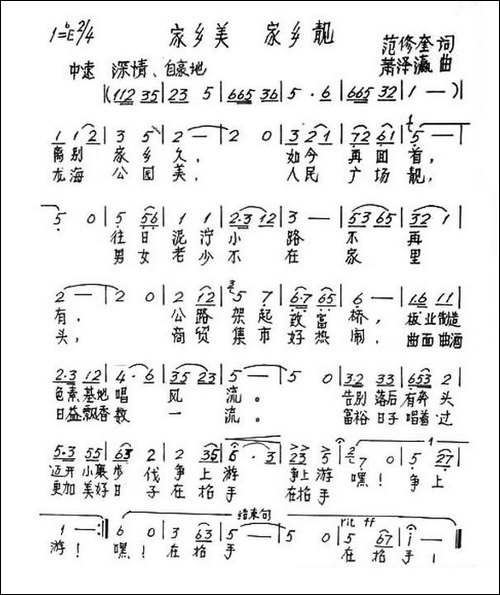 家乡美 家乡靓
1=bE 2/4
范修奎 词
中速 深情、自豪地
萧泽瀛 曲
|(112 35|23 5|665 36|5·6|665 32|1 —)|
112|3 5|2—|2 0|321|72 61|5—|
离别 家乡久, 如今 再回首,
龙海 公园美, 人民 广场靓,
5 0|5 56|1 1|2·3 12|3 —|53 65|32 1|
往日 泥泞小 路 不 再
男女 老少不 在 家 里
2—|2 0|2 12|5 7|6·7 65|6 —|16 11|
有, 公路 架起 致富 桥, 板业制造
头, 商贸 集市 好热 闹, 曲面曲酒
2·3 12|4·6|35 23|5—|5 0|32 33|653 2|
色素基地 唱 风 流。 告别落后有奔 头
日益飘香数 一 流。 富裕日子唱着过
5·3 55|63 2|2 35|6·3|23 5|2 7 0|5 27|
迈开小康步 伐 争上游 争上游 嘿! 争上
更加美好日 子 在抬手 在抬手
结束句
rit ff
1 —:|6 0|3 63|5—|5 0|5 67|i —‖
游! 嘿! 在抬 手! 在抬 手!